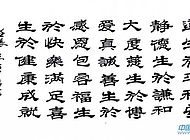 静德生於謙和
大度慈生於博
愛真誠善生於
感恩包容福生
於快樂滿足喜
生於健康成就